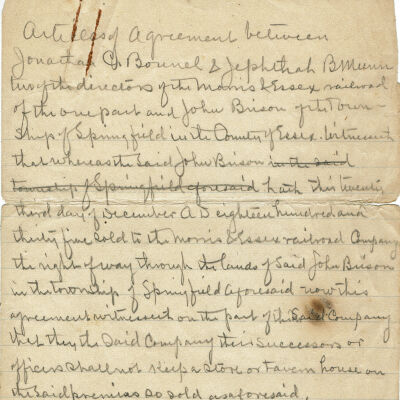 Articles of Agreement between
Jonathan C. Bonnel & Jephthah B Munn
two of the directors of the Morris & Essex railroad
of the one part and John Brison of the Town-
ship of Springfield in the County of Essex. Witnesseth
that whereas the Said John Brison in the said
township of Springfield aforesaid hath this twenty
third day of December A D eighteen hundred and
thirty five sold to the Morris & Essex railroad Company
the right of way through the lands of Said John Brison
in the township of Springfield aforesaid now this
agreement witnesseth on the part of the Said Company
that they the Said Company their Successors or
officers shall not keep a store or tavern house on
the Said premises so sold as aforesaid,